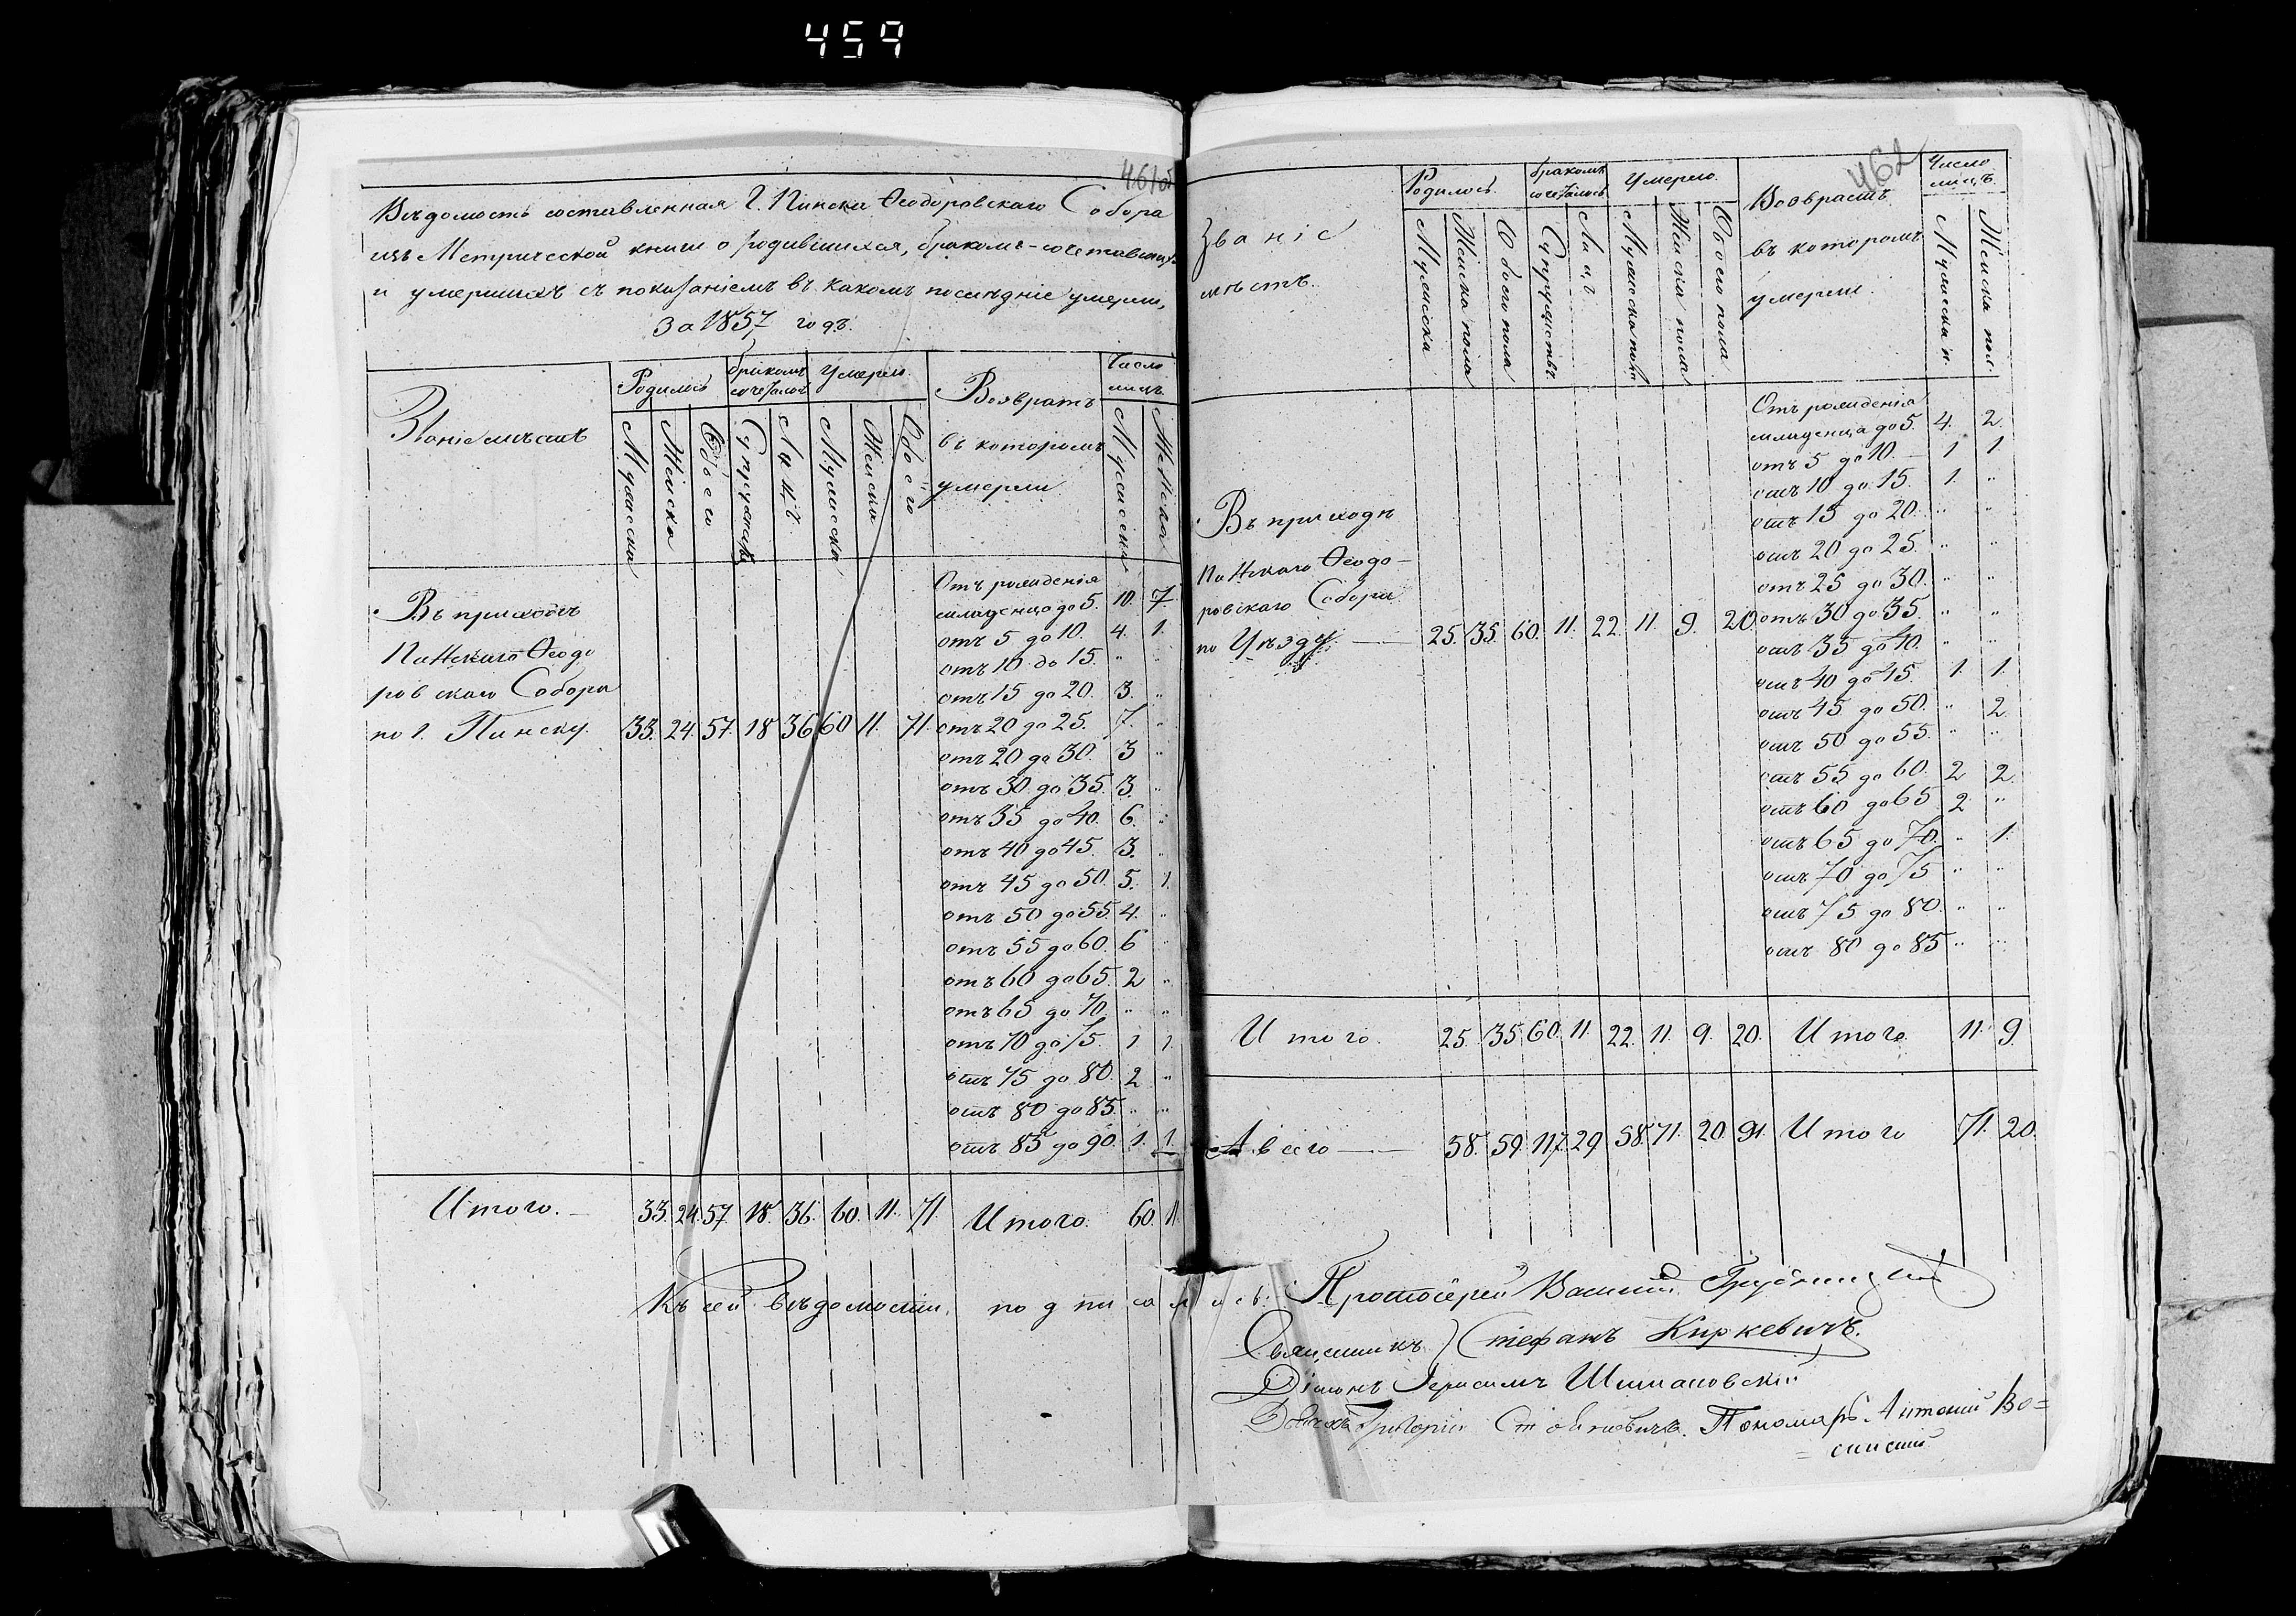 459
461 об
Вѣдомость составленная Г. Пинска Ѳеодоровскаго Собора
изъ Метрической книги о родившихся, бракомъ-сочетавших.
и умершихъ съ показаніемъ въ какомъ послѣдніе умерли,
За 1857 годъ.
Званіе мѣстъ
Родилось
бракомъ сочеталось
Умерло.
Возвратъ въ которомъ умерли
Число лицъ.
Мужеска
Женска
Обоего
Супружествъ
Лицъ
Мужеска
Женска
Обоего
Мужеска
Женска
Въ приходѣ
Пинскаго Ѳеодо
ровскаго Собора
по г. Пинску. 33. 24. 57. 18 36 60 11. 71.
Отъ рожденія
младенца до 5. 10. 7.
отъ 5 до 10. 4. 1.
отъ 10 до 15. " "
отъ 15 до 20. 3. "
отъ 20 до 25. 7. "
отъ 20 до 30. 3 "
отъ 30 до 35. 3. "
отъ 35 до 40. 6. "
отъ 40 до 45. 3. "
отъ 45 до 50. 5. 1.
отъ 50 до 55 4. "
отъ 55 до 60. 6 "
отъ 60 до 65. 2 "
отъ 65 до 70. " "
отъ 70 до 75. 1 1.
отъ 75 до 80. 2 "
отъ 80 до 85. " "
отъ 85 до 90. 1. 1.
Итого. 33. 24. 57. 18. 36. 60. 11. 71. Итого. 60. 11.
Къ сей вѣдомости, подписались:
462
Званіе мѣстъ.
Родилось.
бракомъ сочеталось
Умерло.
Возврастъ въ которомъ умерли.
Число лицъ.
Мужеска
Женска пола
Обоего пола
Супружествъ.
Лицъ
Мужеска пола
Женска пола
Обоего пола.
Мужеска п.
Женска пол
Въ приходѣ
Пинскаго Ѳеодо-
ровскаго Собора
по Уѣзду. 25. 35. 60. 11. 22. 11. 9. 20.
Отъ рожденія
младенца до 5. 4. 2.
отъ 5 до 10. 1 1
отъ 10 до 15. 1. "
отъ 15 до 20. " "
отъ 20 до 25. " "
отъ 25 до 30. " "
отъ 30 до 35. " "
отъ 35 до 40. " "
отъ 40 до 45. 1. 1.
отъ 45 до 50. " 2.
отъ 50 до 55. " "
отъ 55 до 60. 2 2.
отъ 60 до 65 2 "
отъ 65 до 70. " 1.
отъ 70 до 75 " "
отъ 75 до 80. " "
отъ 80 до 85 " "
Итого. 25. 35. 60. 11. 22. 11. 9. 20. Итого 11. 9.
А всего 58. 59. 117. 29 58. 71. 20. 91. Итого 71. 20.
Протоіерей Василій
Священникъ Стефанъ Киркевичъ.
Діаконъ Герасимъ Шимановскій
Григорій Пономарь Антоній Во=